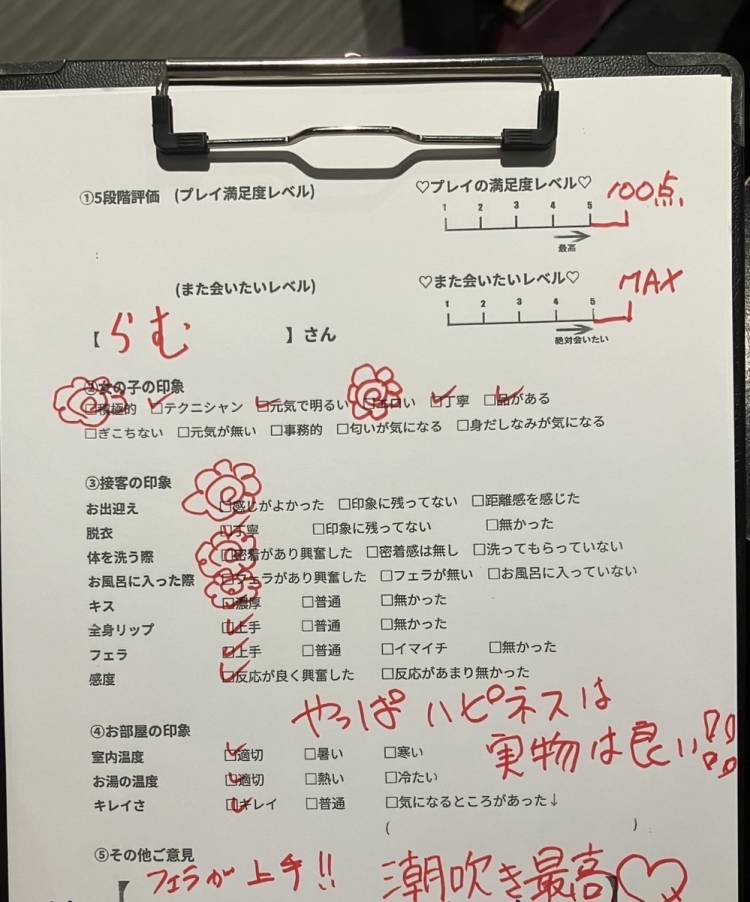 ①5段階評価 (プレイ満足度レベル) ♡プレイの満足度レベル♡ 100点
1 2 3 4 5
最高
(また会いたいレベル) ♡また会いたいレベル♡ MAX
1 2 3 4 5
絶対会いたい
【 らむ 】さん
②女の子の印象
□積極的 □テクニシャン □元気で明るい □エロい □丁寧 □品がある
□ぎこちない □元気が無い □事務的 □匂いが気になる □身だしなみが気になる
③接客の印象
お出迎え □感じがよかった □印象に残ってない □距離感を感じた
脱衣 □丁寧 □印象に残ってない □無かった
体を洗う際 □密着があり興奮した □密着感は無し □洗ってもらっていない
お風呂に入った際 □フェラがあり興奮した □フェラが無い □お風呂に入っていない
キス □濃厚 □普通 □無かった
全身リップ □上手 □普通 □無かった
フェラ □上手 □普通 □イマイチ □無かった
感度 □反応が良く興奮した □反応があまり無かった
やっぱハピネスは
実物は良い!!
④お部屋の印象
室内温度 □適切 □暑い □寒い
お湯の温度 □適切 □熱い □冷たい
キレイさ □キレイ □普通 □気になるところがあった↓
( )
⑤その他ご意見
【 フェラが上手!! 潮吹き最高♡ 】